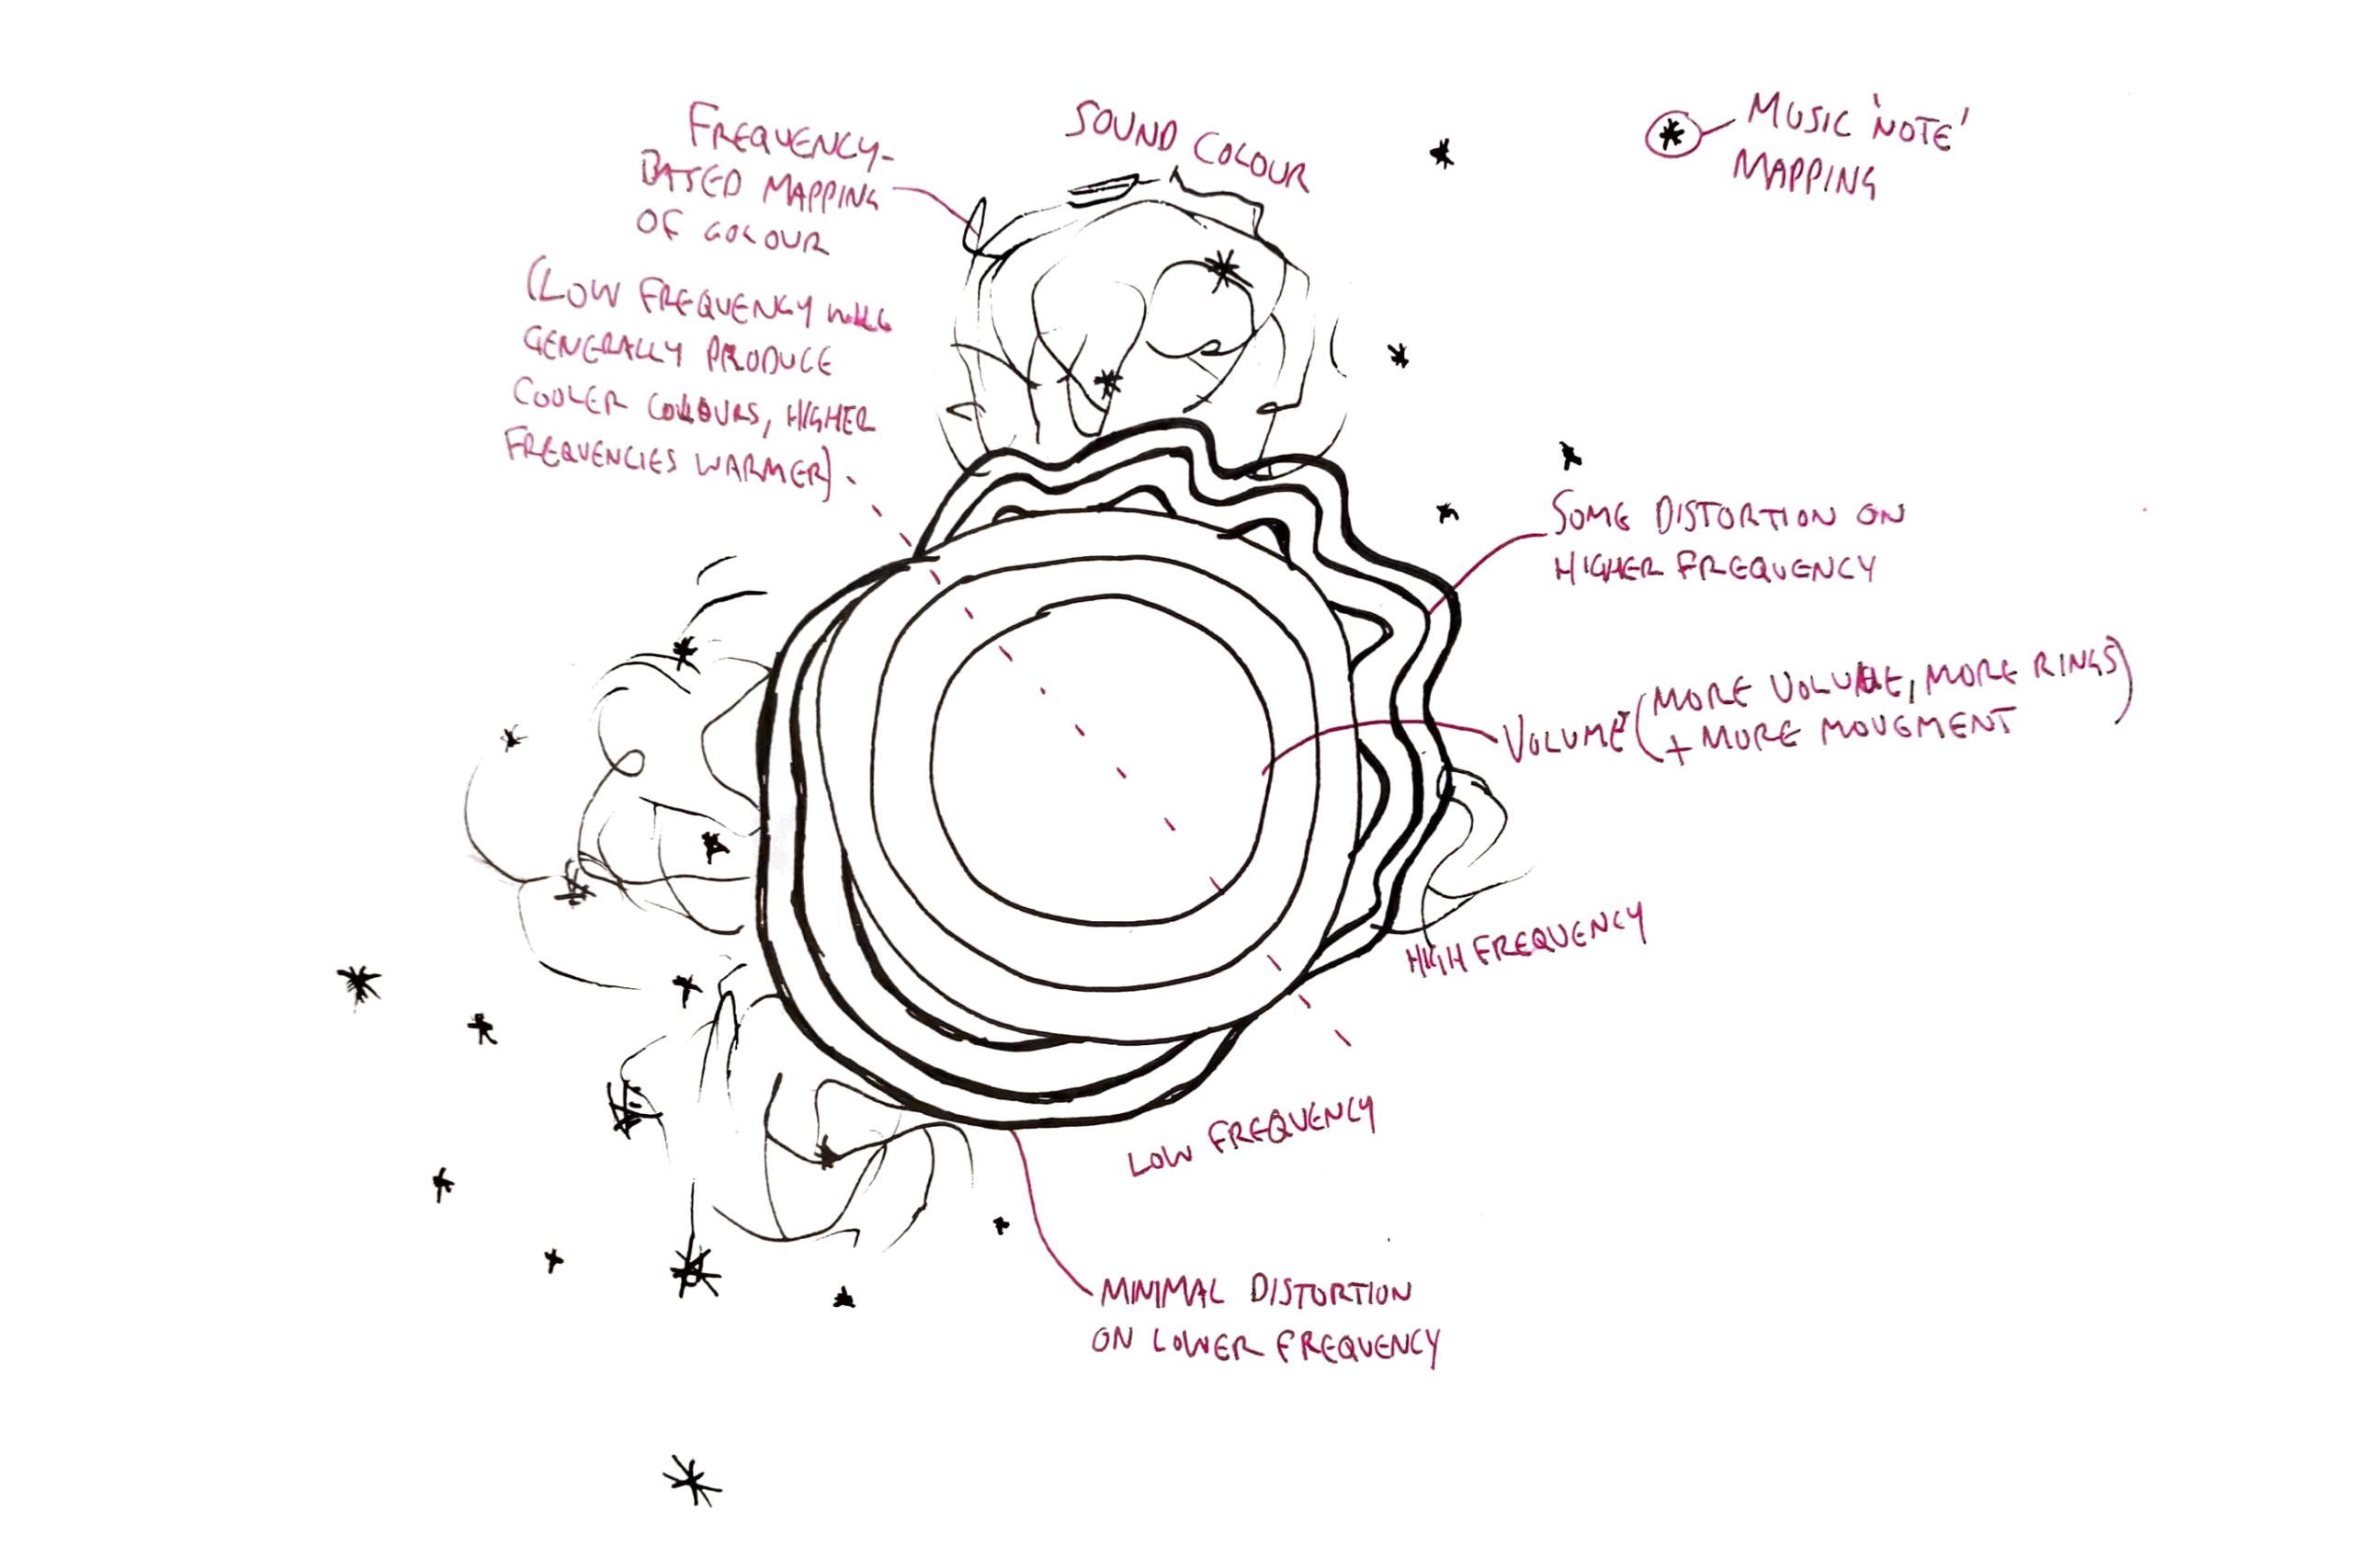 FREQUENCY-
BASED MAPPING
OF COLOUR
(LOW FREQUENCY WILL
GENERALLY PRODUCE
COOLER COLOURS, HIGHER
FREQUENCIES WARMER).
SOUND COLOUR
MUSIC 'NOTE'
MAPPING
SOME DISTORTION ON
HIGHER FREQUENCY
VOLUME (MORE VOLUME, MORE RINGS)
+ MORE MOVEMENT
HIGH FREQUENCY
LOW FREQUENCY
MINIMAL DISTORTION
ON LOWER FREQUENCY